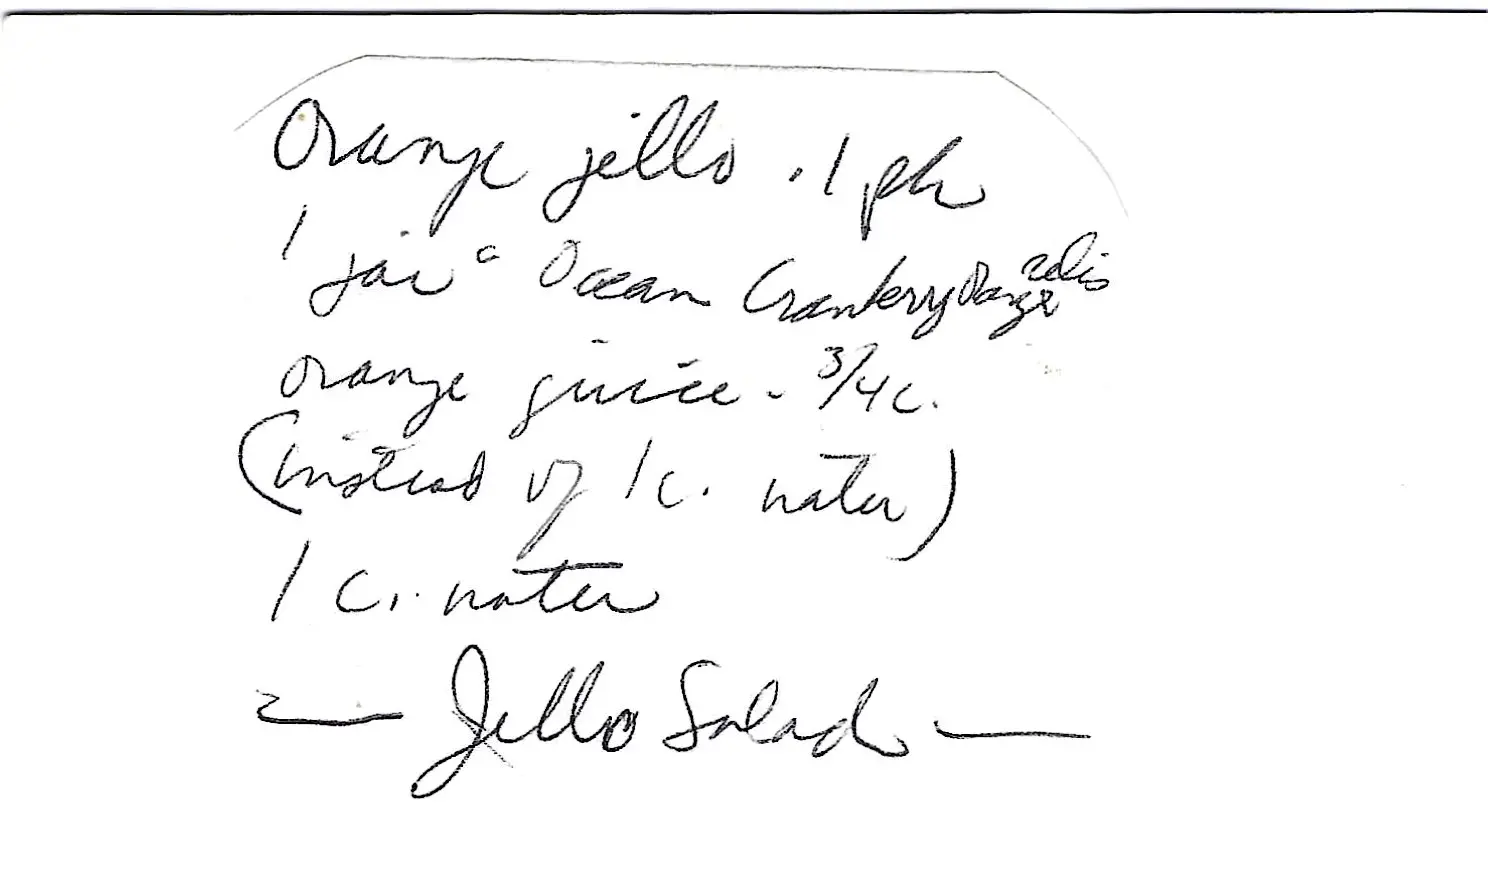 Orange jello . 1 pk
1 "jar" Ocean Cranberry Orange relis
orange juice - 3/4 c.
(instead of 1 c. water)
1 c. water
— Jello Salad —